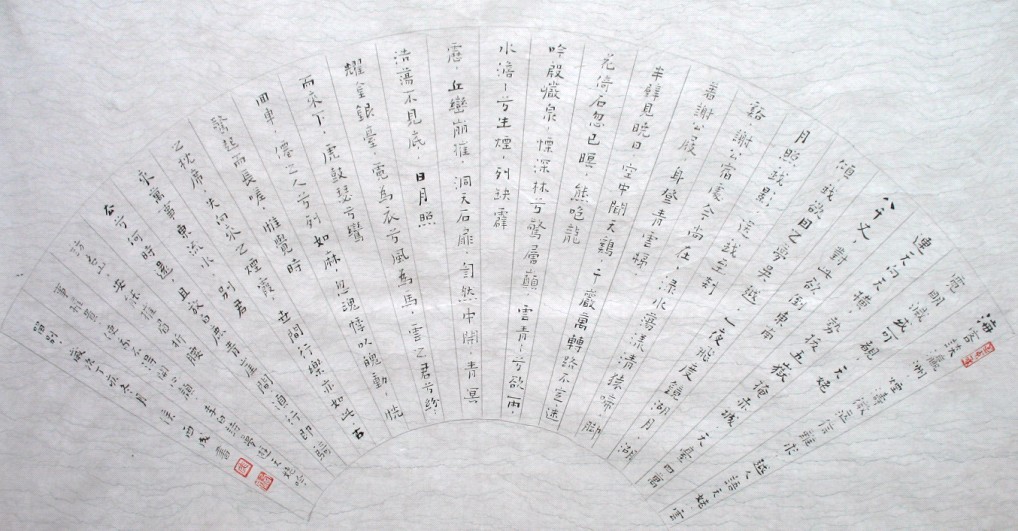 海客談瀛洲,煙濤微茫信難求,越人語天姥,雲
霓明滅或可覩 天姥
連天向天橫,勢拔五嶽掩赤城 天臺四萬
八千丈,對此欲倒東南
傾,我欲因之夢吳越,一夜飛度鏡湖月,湖
月照我影,送我至剡
谿,謝公宿處今尚在,淥水蕩漾清猿啼,脚
著謝公屐,身登青雲梯
半壁見晚日 空中聞天鷄,千巖萬轉路不定,迷
花倚石忽已暝,熊咆龍
吟殷巖泉,慄深林兮驚層巔,雲青〻兮欲雨,
水澹〻兮生煙,列缺霹
靂,丘巒崩摧,洞天石扉,訇然中開,青冥
浩蕩不見底,日月照
耀金銀臺,霓為衣兮風為馬,雲之君兮紛〻
而來下,虎鼓瑟兮鸞
回車,僊之人兮列如麻,忽魂悸以魄動,恍
驚起而長嗟,惟覺時
之枕席,失向來之煙霞,世間行樂亦如此,古
來萬事東流水,別君
去兮何時還,且放白鹿青崖間,須行即騎
訪名山,安能摧眉折腰
事權貴,使我不得開心顏 李白詩夢遊天姥吟
留別,歲次丁卯冬月 書